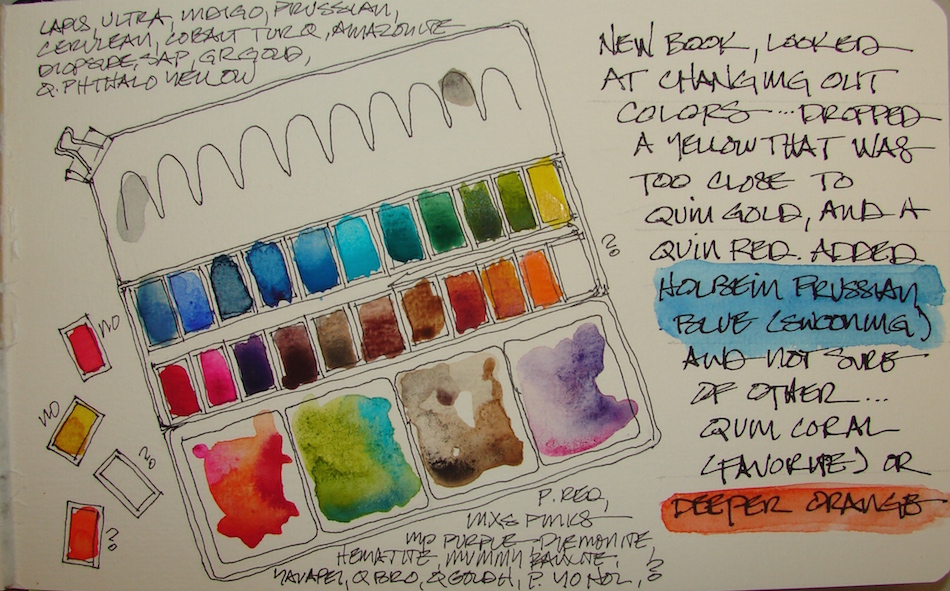 LAPIS, ULTRA, INDIGO, PRUSSIAN,
CERULEAN, COBALT TURQ, AMAZONITE
DIOPSIDE, SAP, GR GOLD,
Q. PHTHALO YELLOW
NEW BOOK, LOOKED
AT CHANGING OUT
COLORS ... DROPPED
A YELLOW THAT WAS
TOO CLOSE TO
QUIN GOLD, AND A
QUIN RED. ADDED
HOLBEIN PRUSSIAN
BLUE (SWOONING)
AND NOT SURE
OF OTHER ...
QUIN CORAL
(FAVORITE) OR
DEEPER ORANGE
?
NO
NO
?
?
P. RED,
PINKS
PURPLE PIEMONITE,
HEMATITE, MUMMY BAUXITE,
YAVAPAI, Q BRO, Q GOLD H, ?